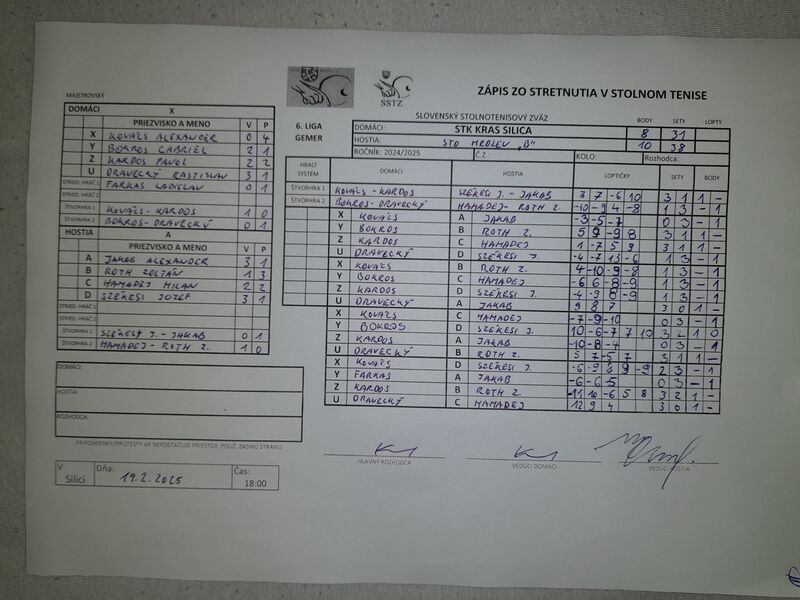 ZÁPIS ZO STRETNUTIA V STOLNOM TENISE
SSTZ
SLOVENSKÝ STOLNOTENISOVÝ ZVÄZ
BODY SETY LOPTY
6. LIGA
GEMER
DOMÁCI: STK KRAS SILICA 8 31
HOSTIA: STO HRDLEV "B" 10 38
ROČNÍK: 2024/2025 Č.Z. KOLO: Rozhodca:
MAJSTROVSKÝ
DOMÁCI X
PRIEZVISKO A MENO V P
X KOVÁCS ALEXANDER 0 4
Y BOKROS GABRIEL 2 1
Z KARDOS PAVOL 2 2
U DRAVECKÝ RASTISLAV 3 1
STRIED. HRÁČ 1 FARKAS LADISLAV 0 1
STRIED. HRÁČ 2
ŠTVORHRA 1 KOVÁCS - KARDOS 1 0
ŠTVORHRA 2 BOKROS - DRAVECKÝ 0 1
HOSTIA A
PRIEZVISKO A MENO V P
A JAKAB ALEXANDER 3 1
B ROTH ZOLTÁN 1 3
C HAMADEJ MILAN 2 2
D SZÉKESI JOZEF 3 1
STRIED. HRÁČ 1
STRIED. HRÁČ 2
ŠTVORHRA 1 SZÉKESI J. - JAKAB 0 1
ŠTVORHRA 2 HAMADEJ - ROTH Z. 1 0
DOMÁCI:
HOSTIA:
ROZHODCA:
PRIPOMIENKY/PROTESTY AK NEPOSTAČUJE PRIESTOR, POUŽ. ZADNÚ STRANU
V Silici Dňa: 19.2.2025 Čas: 18:00
HRACÍ SYSTÉM DOMÁCI HOSTIA LOPTIČKY SETY BODY
ŠTVORHRA 1 KOVÁCS - KARDOS SZÉKESI J. - JAKAB 8 7 -6 10 3 1 1 -
ŠTVORHRA 2 BOKROS - DRAVECKÝ HAMADEJ - ROTH Z. -10 -9 4 -8 1 3 - 1
X KOVÁCS A JAKAB -3 -5 -7 0 3 - 1
Y BOKROS B ROTH Z. 5 9 -9 8 3 1 1 -
Z KARDOS C HAMADEJ 1 -7 5 9 3 1 1 -
U DRAVECKÝ D SZÉKESI J. -4 -7 13 -6 1 3 - 1
X KOVÁCS B ROTH Z. 4 -10 -9 -8 1 3 - 1
Y BOKROS C HAMADEJ -6 6 -8 -9 1 3 - 1
Z KARDOS D SZÉKESI J. -4 -9 8 -9 1 3 - 1
U DRAVECKÝ A JAKAB 9 8 7 3 0 1 -
X KOVÁCS C HAMADEJ -7 -9 -10 0 3 - 1
Y BOKROS D SZÉKESI J. 10 -6 -7 7 10 3 2 1 0
Z KARDOS A JAKAB -10 -8 -4 0 3 - 1
U DRAVECKÝ B ROTH Z. 5 7 -5 7 3 1 1 -
X KOVÁCS D SZÉKESI J. -6 -9 8 9 -9 2 3 - 1
Y FARKAS A JAKAB -6 -6 -5 0 3 - 1
Z KARDOS B ROTH Z. -11 10 -6 5 8 3 2 1 -
U DRAVECKÝ C HAMADEJ 12 9 4 3 0 1 -
HLAVNÝ ROZHODCA VEDÚCI DOMÁCI VEDÚCI HOSTIA